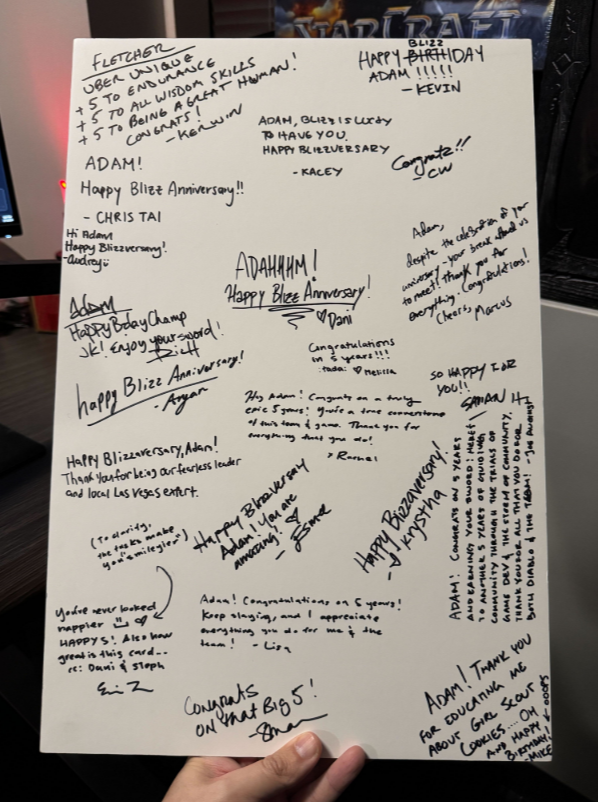 STARCRAFT
FLETCHER
UBER UNIQUE
+5 TO ENDURANCE
+5 TO ALL WISDOM SKILLS
+5 TO BEING A GREAT HUMAN!
CONGRATS!
- KERWIN
BLIZZ
HAPPY BIRTHDAY
ADAM !!!!!
- KEVIN
ADAM, BLIZZ IS LUCKY
TO HAVE YOU.
HAPPY BLIZZVERSARY
- KACEY
Congrats!!
- CW
ADAM!
Happy Blizz Anniversary!!
- CHRIS TAI
Hi Adam
Happy Blizzversary!
-Audrey
Adam,
despite the celebration of your
universary - your break allowed us
to meet! Thank you for
everything. Congratulations!
Cheers, Marcus
ADAHHHM!
Happy Blizz Anniversary!
♡ Dani
ADAM
Happy Bday Champ
JK! Enjoy your sword!
Rich
Congratulations
on 5 years!!!
:tada: ♡ Melissa
happy Blizz Anniversary!
- Aryan
SO HAPPY FOR
YOU!!
SAMAN H
Hey Adam! Congrats on a truly
epic 5 years! You're a true cornerstone
of this team & game. Thank you for
everything that you do!
> Rachel
Happy Blizzaversary, Adam!
Thank you for being our fearless leader
and local Las Vegas expert.
Happy Blizzversary
Adam! You are
amazing! ♡
- Esme
Happy Blizzaversary!
- Krystha
ADAM! CONGRATS ON 5 YEARS
AND EARNING YOUR SWORD! HERE'S
TO ANOTHER 5 YEARS OF GUIDING
COMMUNITY THROUGH THE TRIALS OF
GAME DEV & THE STORM OF COMMUNITY.
THANK YOU FOR ALL THAT YOU DO FOR
BOTH DIABLO & THE TEAM! - JOE
(To clarify,
the tasks make
you "smileyier")
You've never looked
happier
HAPPY 5! Also how
great is this card--
cc: Dani & Steph
Adam! Congratulations on 5 years!
Keep slaying, and I appreciate
everything you do for me & the
team! - Lisa
CONGRATS
ON that Big 5!
ADAM! THANK YOU
FOR EDUCATING ME
ABOUT GIRL SCOUT
COOKIES.... OH
AND HAPPY
BIRTHDAY! ← OOPS
- MIKE